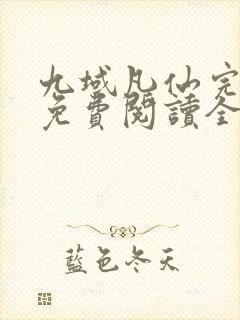 九域凡仙完
免費閱讀全
藍色冬天